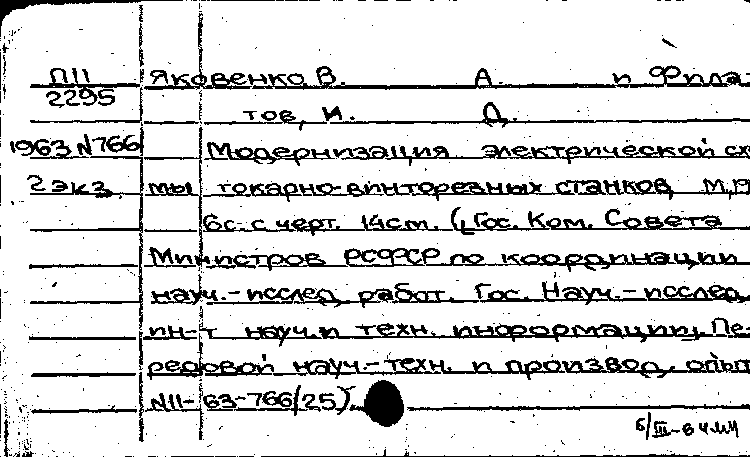 П11 Яковенко, В. А. и Фила-
2295 тов, И. Д.
1963 N766 Модернизация электрической схе
2 экз. мы токарно-винторезных станков, М,
6с. с черт. 14см. (Гос. Ком. Совета
Министров РСФСР по координации
науч.-исслед. работ. Гос. Науч.-исслед.
ин-т науч. и техн. информации, Пе-
редовой науч.-техн. и производ. опыт
N11-63-766/25).